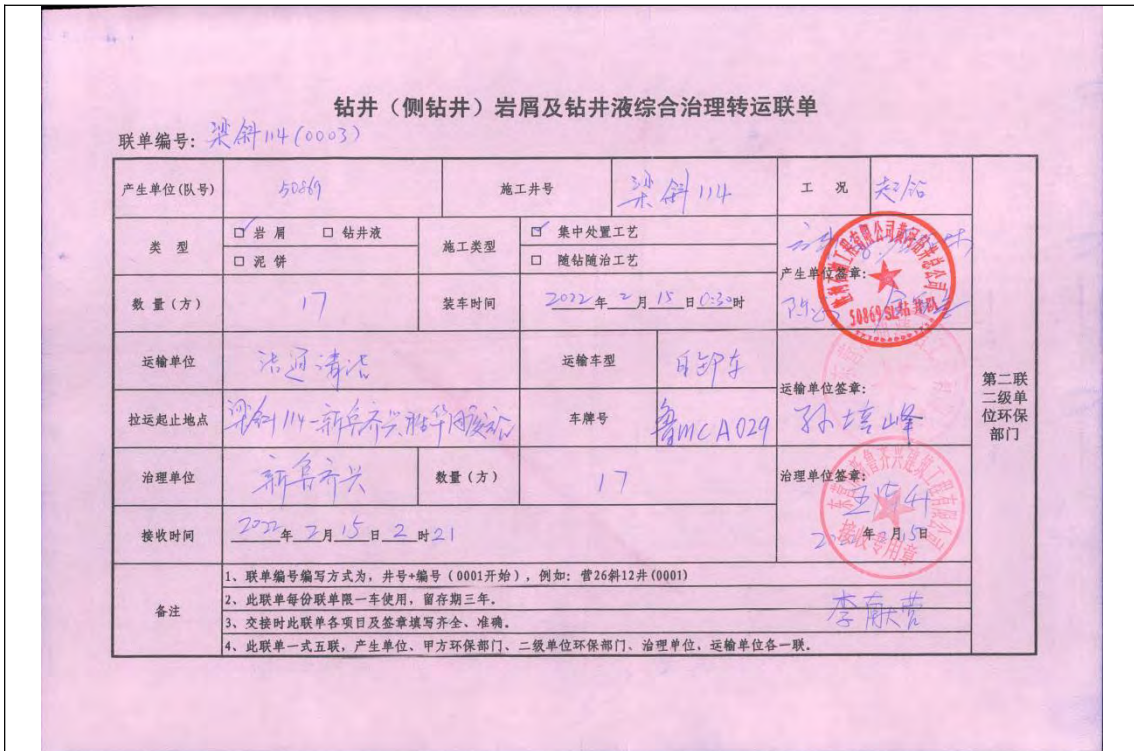 钻井（侧钻井）岩屑及钻井液综合治理转运联单
联单编号: 梁斜114(0003)
产生单位(队号) 50869 施工井号 梁斜114 工 况 起钻
类 型 ☑ 岩 屑 □ 钻井液 施工类型 ☑ 集中处置工艺
□ 泥 饼 □ 随钻随治工艺
产生单位签章:
数 量（方） 17 装车时间 2022年2月15日0:30时
50869SL钻井队
运输单位 洁通清洁 运输车型 自卸车
运输单位签章:
拉运起止地点 梁斜114-新鲁齐兴 车牌号 鲁MCA029 孙培峰
第二联
二级单
位环保
部门
治理单位 新鲁齐兴 数量（方） 17 治理单位签章:
接收时间 2022年2月15日2时21
年2月15日
接收专用章
备注
1、联单编号编写方式为，井号+编号（0001开始），例如: 营26斜12井(0001)
2、此联单每份联单限一车使用，留存期三年。
3、交接时此联单各项目及签章填写齐全、准确。
4、此联单一式五联，产生单位、甲方环保部门、二级单位环保部门、治理单位，运输单位各一联。
李献营